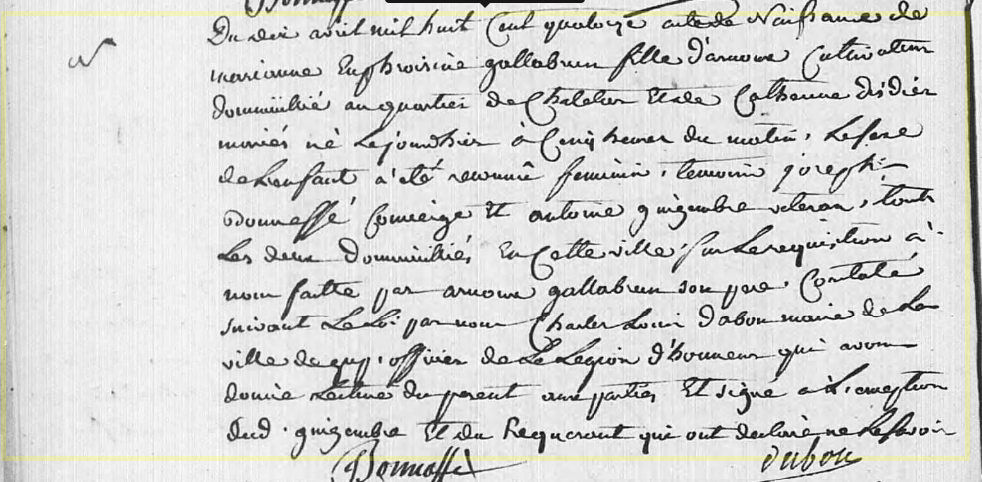 Du dix avril mil huit Cent quatorze acte de Naissance de
marianne Euphroisine gallabrun fille d'arnoux Cultivateur
domicilié au quartier de Chalelar Et de Catherine disdier
mariés né Le jour d'hier à Cinq heures du matin, Le sexe
de L'enfant a été reconnu féminin, temoins joseph
Bonnaffé Concierge Et antoine guizembre veteran, touts
Les deux domiciliés En Cette ville, sur La requisition à
nous faitte par arnoux gallabrun son pere. Constaté
suivant La Loi par nous Charles Louis dabon maire de La
ville de gap, officier de La Legion d'honneur qui avons
donné Lecture du present aux parties Et signé a L'exception
dud. guizembre Et du Requerant qui ont declaré ne Le savoir
Bonnaffé dabon